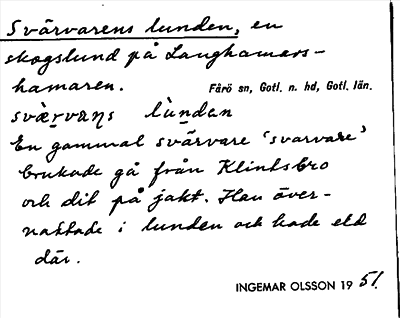 Svärvarens lunden, en
skogslund på Langhamars-
hamaren.
Fårö sn, Gotl. n. hd, Gotl. län.
svæ̀rvans lùndan
En gammal svärvare 'svarvare'
brukade gå från Klintsbro
och dit på jakt. Han över-
nattade i lunden och hade eld
där.
INGEMAR OLSSON 19 51.